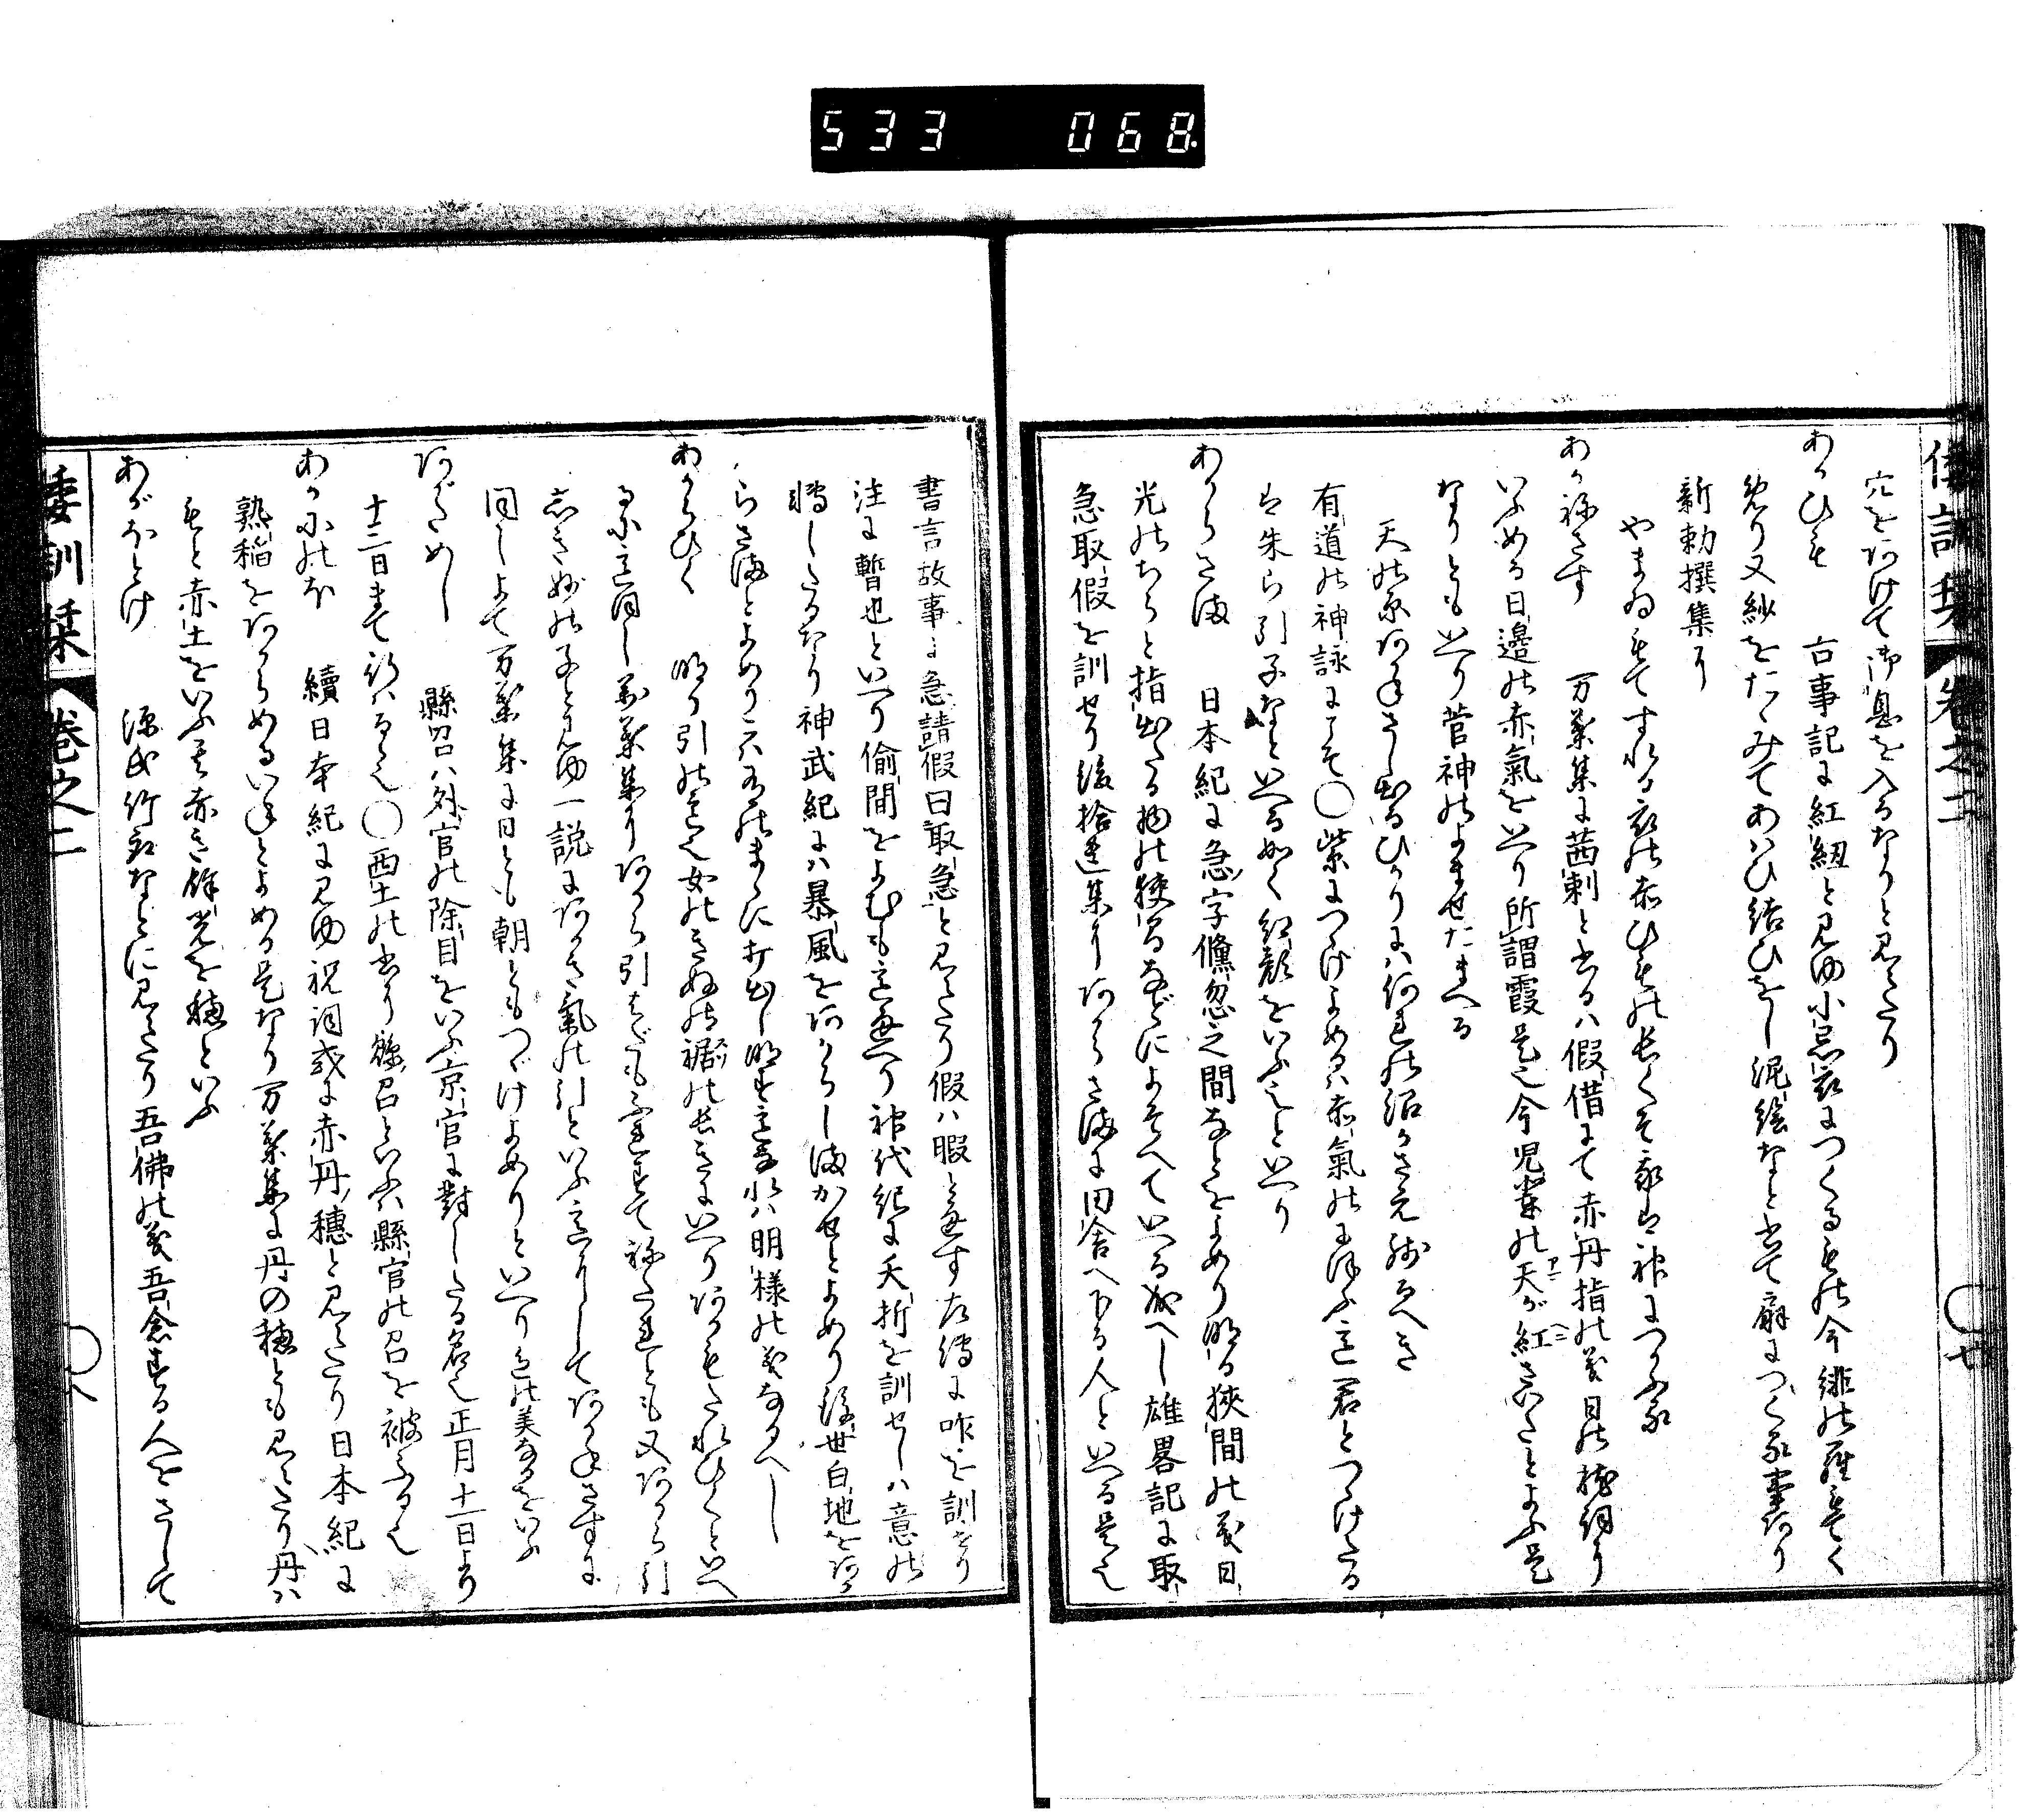 533 068
倭訓栞 卷之二 ○七
穴をあけて御息を入るなりと見えたり
あかひも 古事記に紅紐と見ゆ小忌衣につくるもの今緋の羅もてく
めり又紗をたゝみてあはひ結ひをし泥絵なと書て麻につくる事あり
新勅撰集に
やまゐもてすれる衣の赤ひもの長くそ我は神につかふる
あかねさす 万葉集に茜刺と書るハ假借にて赤丹指の義日の枕詞に
いふめる日邊の赤氣をいへり所謂霞是也今児輩の天が紅さいたとよふ是
なりともいへり菅神のよませたまへる
天の原あかねさし出るひかりにハ何れの沼かさえ残るへき
有道の神詠にこそ○紫につゝけよめるハ赤氣のにほふ也君とつゝけたる
は朱ら引子なといへる如く紅顔をいふなといへり
あからさま 日本紀に急字儵忽之間なとをよめり明る狭間の義日
光のちらと指出たる物の狭間などによそへていへる成へし雄畧記に取
急取假を訓せり後拾遺集にあからさまに田舎へ下る人といへる是也
書言故事に急請假曰取急と見えたり假ハ暇と通す左傳に咋を訓せり
注に暫也といへり偷間をよむも通へり神代紀に夭折を訓せしハ意の
轉したるなり神武紀にハ暴風をあからしまかせとよめり後世白地をあか
らさまとよめり
あからひく 明ら引の義也女のきぬの裾の長きにいへりあかもたれひくといへ
るに同し万葉集にあから引
しき妙の子と見ゆ一説にあかき氣の引といふ意にしてあかねさすに
同しよて万葉集に日とも朝ともつゞけよめりといへり色の美なるをいふ
あがためし 縣召ハ外官の除目をいふ京官に對したる名也正月十一日より
十三日まて行はるゝ也○西土の書に縣召といふハ縣官の召を被ふる也
あかにのほ 續日本紀に見ゆ祝詞式に赤丹穗と見えたり日本紀に
熟稲をあからめるいねとよめる是なり万葉集に丹の穂とも見えたり丹ハ
もと赤土をいふ又赤き餘光を穂といふ
あがほとけ 源氏竹取なとに見えたり吾佛の義吾念する人をさして
倭訓栞 卷之二 ○八